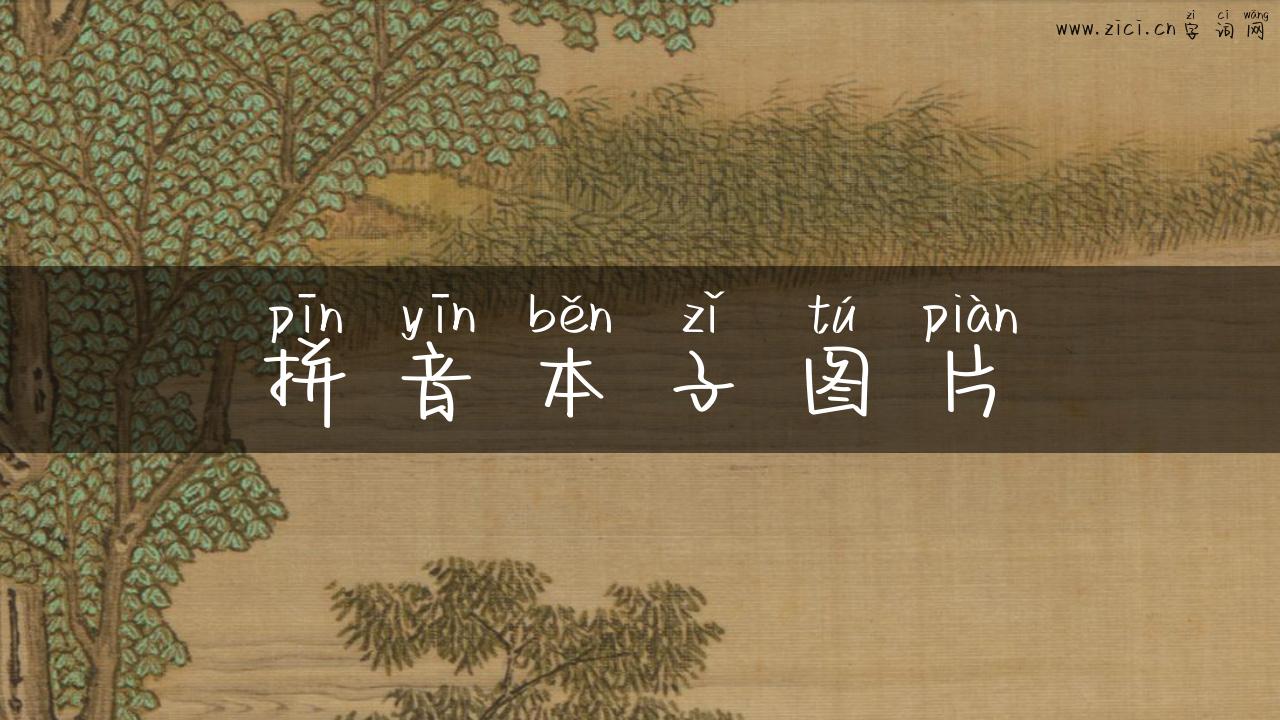 zì cí wǎng
www.zici.cn字词网
pīn yīn běn zǐ tú piàn
拼音本子图片